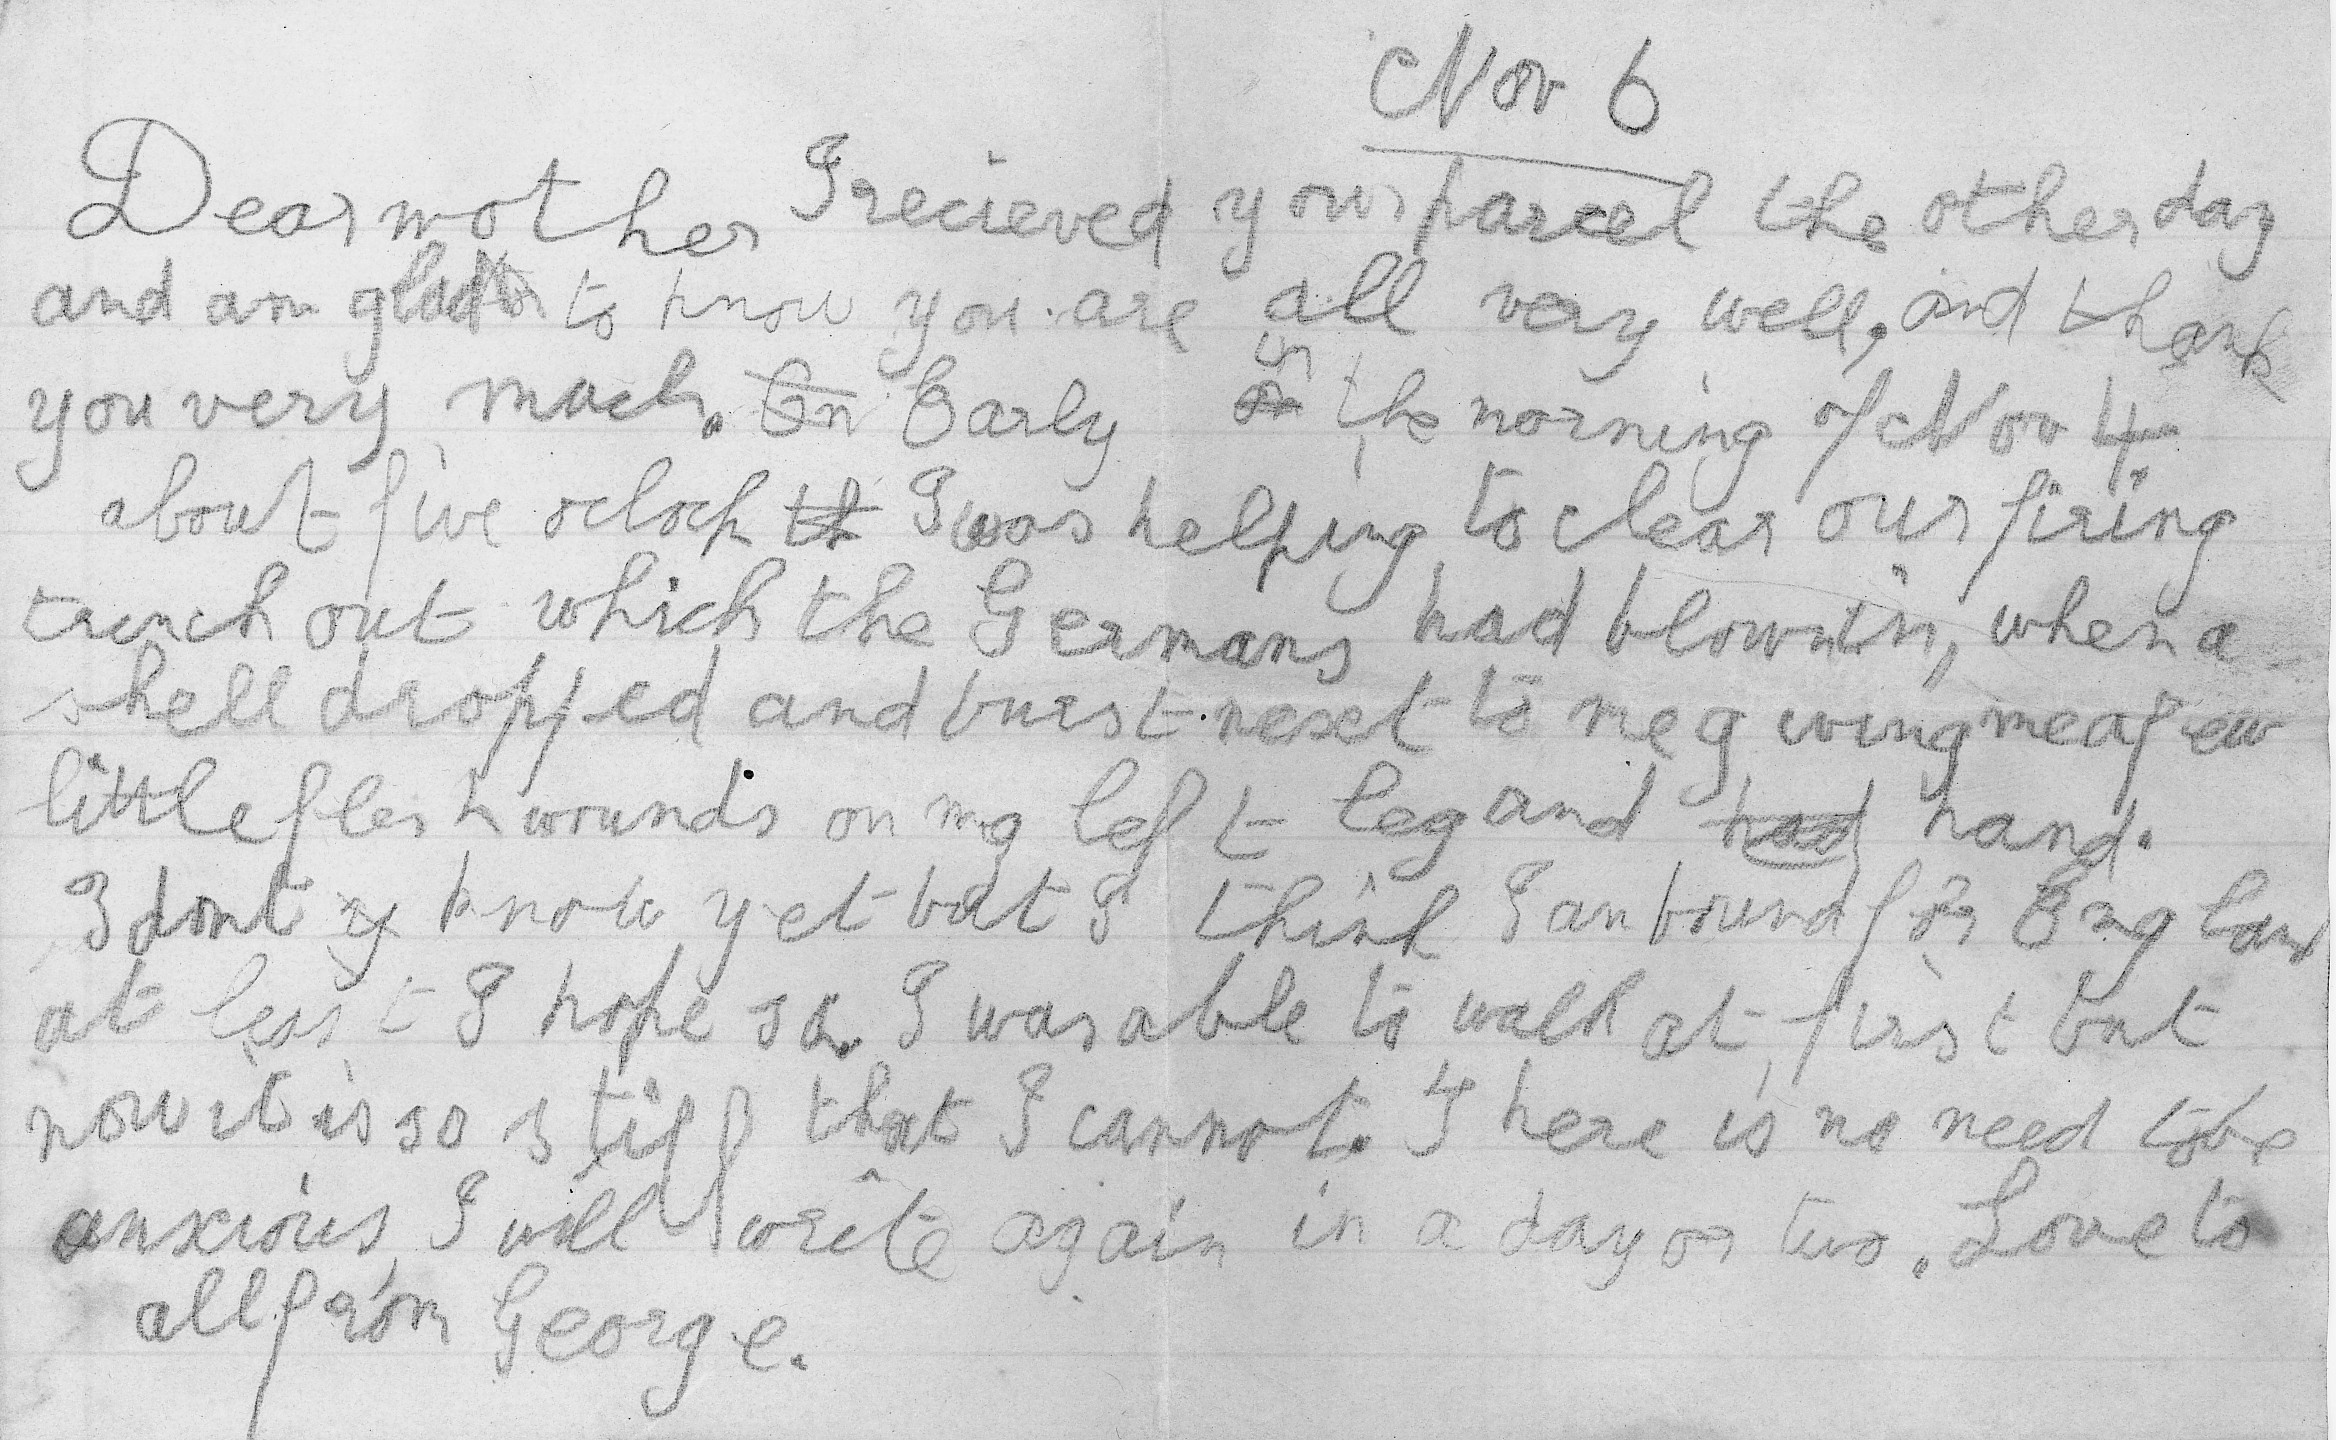 Nov 6
Dear mother I recieved your parcel the other day
and am glad to know you are all very well, and thank
you very much. On Early in the morning of Nov 4
about five oclock I was helping to clear our firing
trench out which the Germans had blown in, when a
shell dropped and burst next to me giving me a few
little flesh wounds on my left leg and had hand.
I dont y know yet but I think I am bound for England
at least I hope so. I was able to walk at first but
now it is so stiff that I cannot. There is no need to be
anxious, I will write again in a day or two. Love to
all from George.